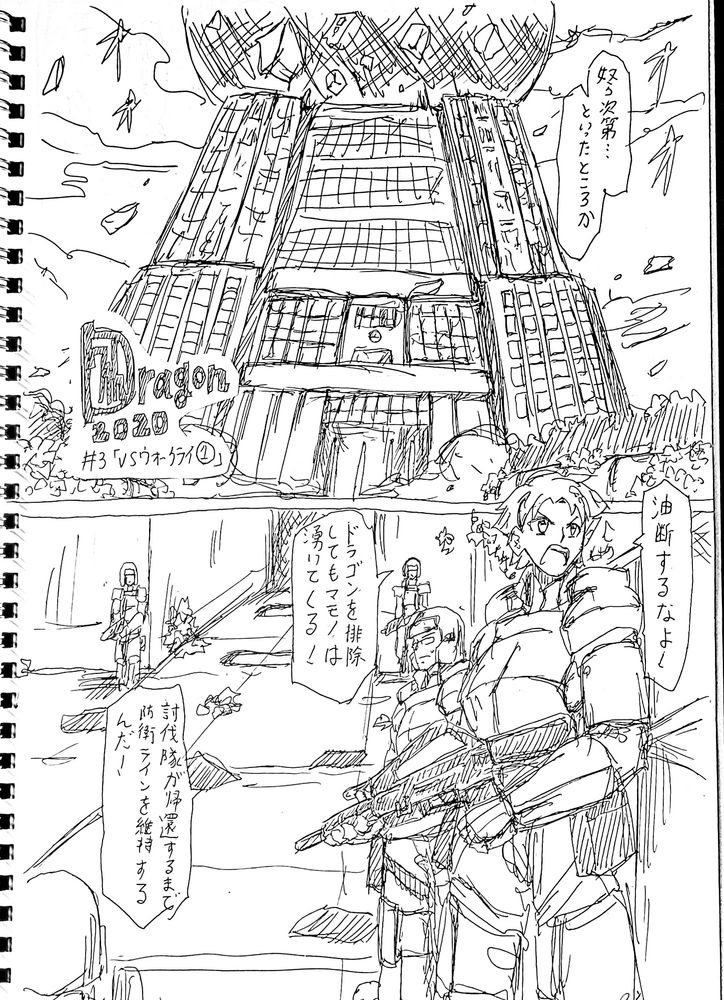 怒う次第…
といたところか
7th Dragon
2020
#3「VSウォークライ①」
油断するなよ!
ドラゴンを排除
してもマモノは
湧いてくる!
討伐隊が帰還するまで
防衛ラインを維持する
んだー!